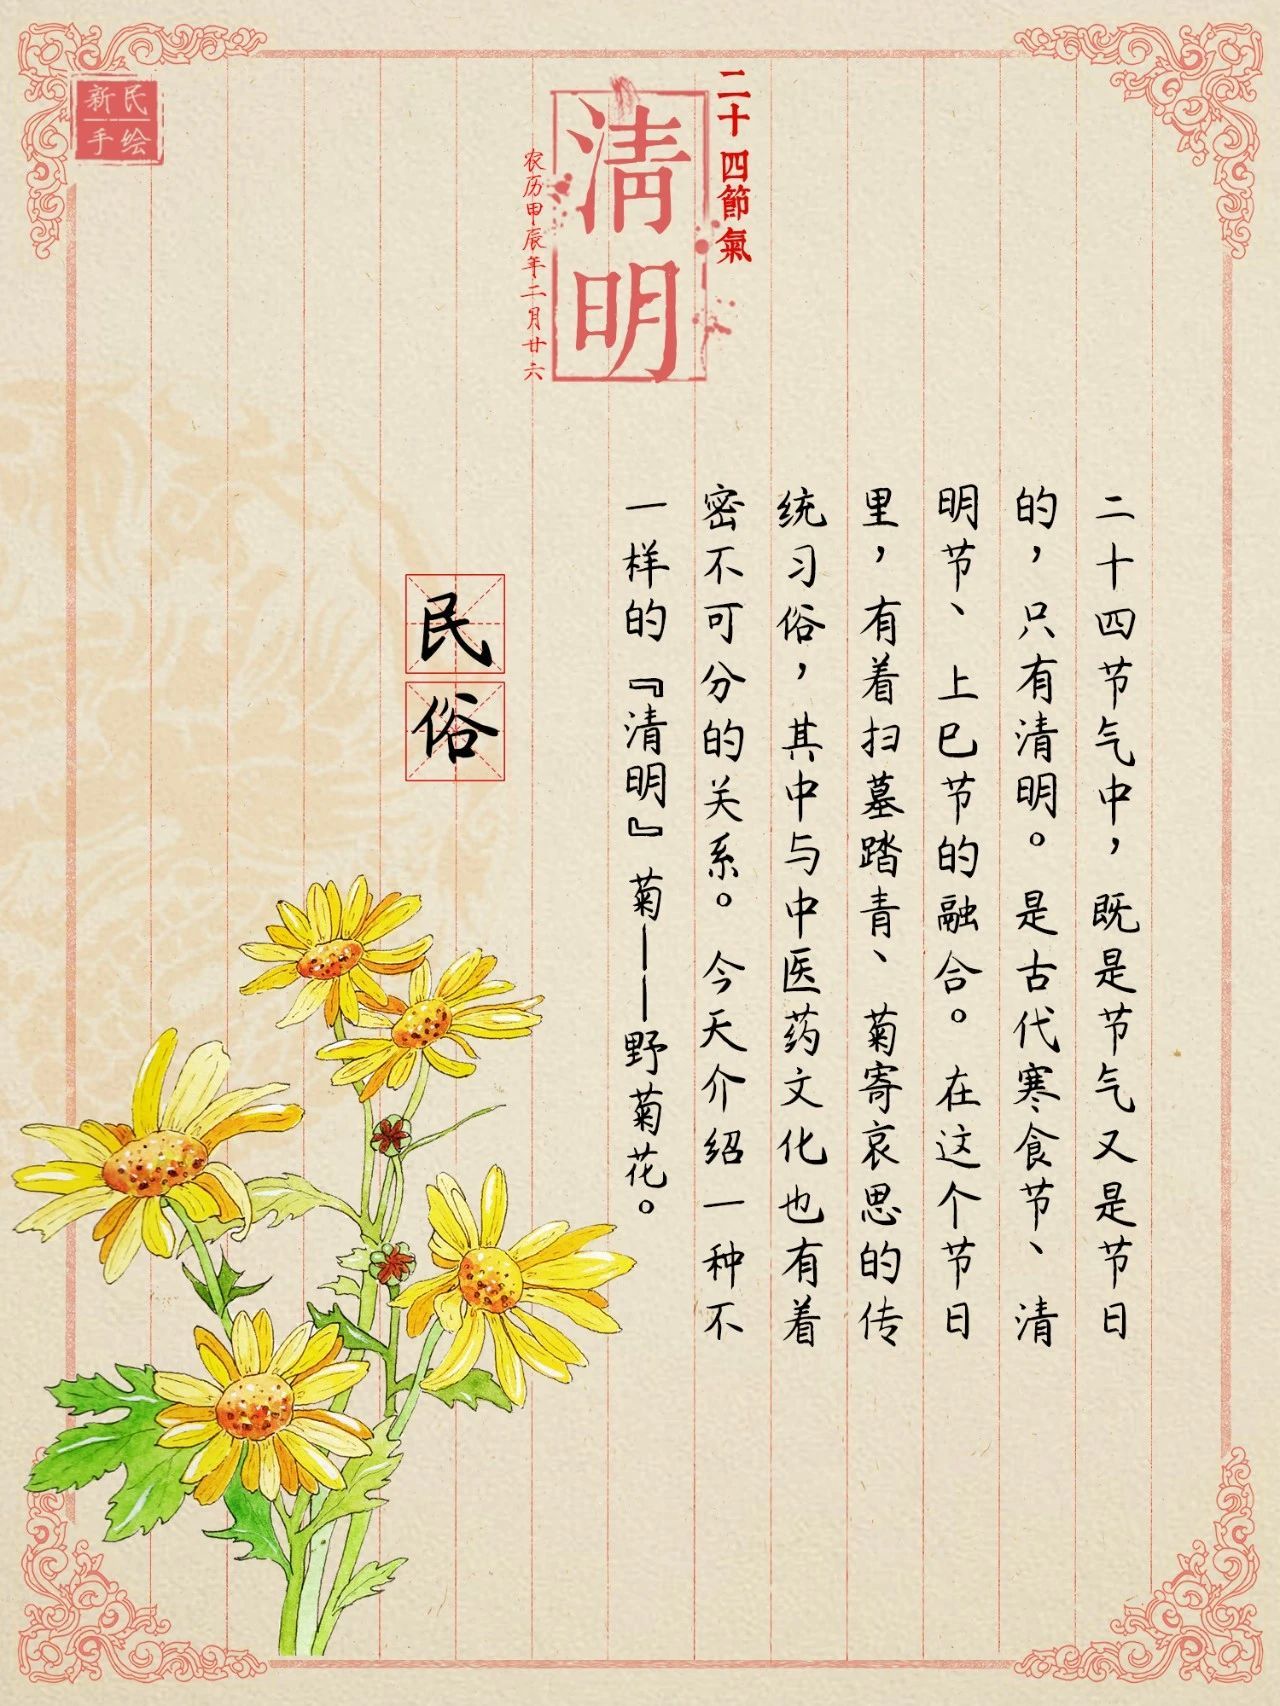 新民
手绘
二十四節氣
清明
农历甲辰年二月廿六
二十四节气中，既是节气又是节日
的，只有清明。是古代寒食节、清
明节、上巳节的融合。在这个节日
里，有着扫墓踏青、菊寄哀思的传
统习俗，其中与中医药文化也有着
密不可分的关系。今天介绍一种不
一样的『清明』菊——野菊花。
民俗